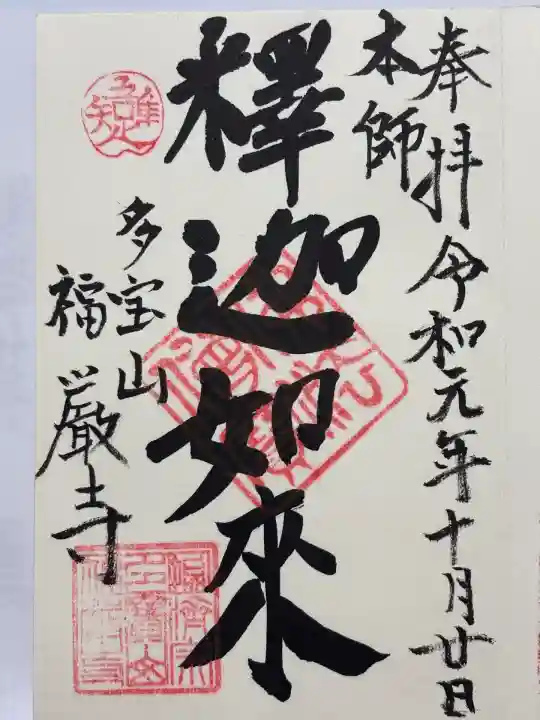 奉拝 令和元年十月廿日
本師
釋迦如來
多宝山
福嚴寺
吾唯足知